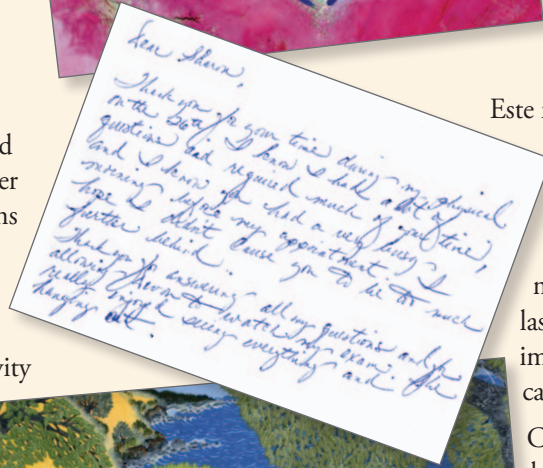 Dear Sharon,
Thank you for your time during my physical
on the 26th. I know I had a lot of
questions and required much of your time,
and I know you had a very busy
morning before my appointment. I
hope I didn't cause you to be too much
further behind.
Thank you for answering all my questions and for
allowing to watch my exam. She
really enjoyed seeing everything and
hanging out.
Este
d
er
ns
vity
n
las
im
ca